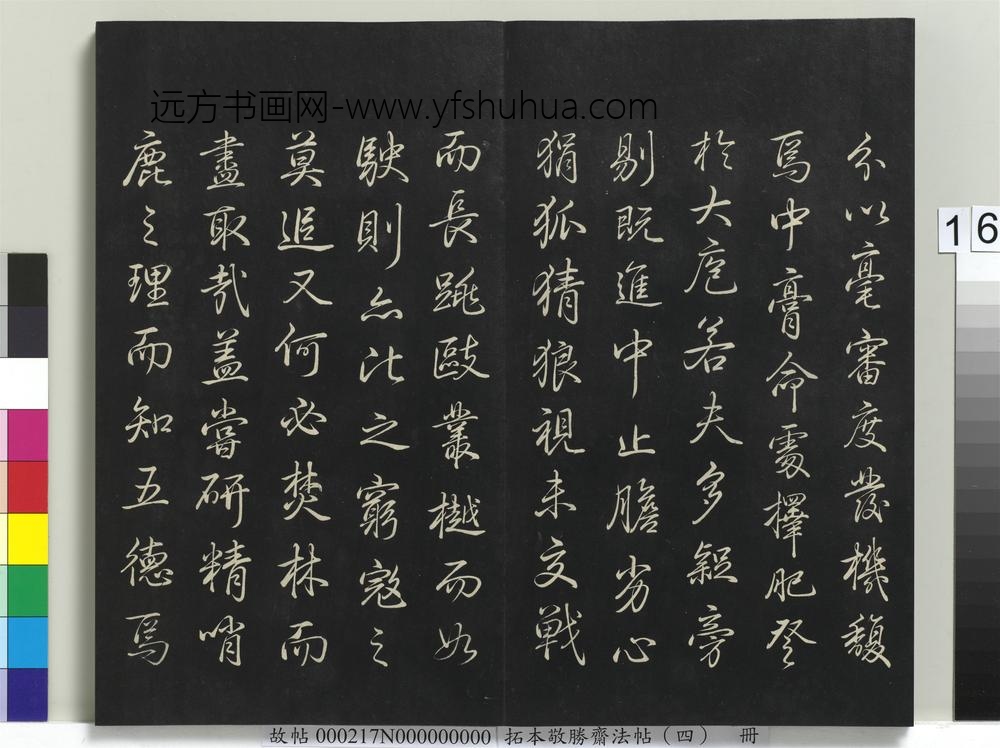 远方书画网-www.yfshuhua.com
分以毫審度發機馥
焉中膏命處擇肥登
於大庖若夫多旁
剔既進中止膽劣心
狷狐猜狼視未交戰
而長跳敺叢樾而如
駛則亦比之窮寇之
莫追又何必焚林而
盡取哉蓋嘗研精哨
鹿之理而知五德焉
16
故帖 000217N000000000 拓本敬勝齋法帖（四） 冊